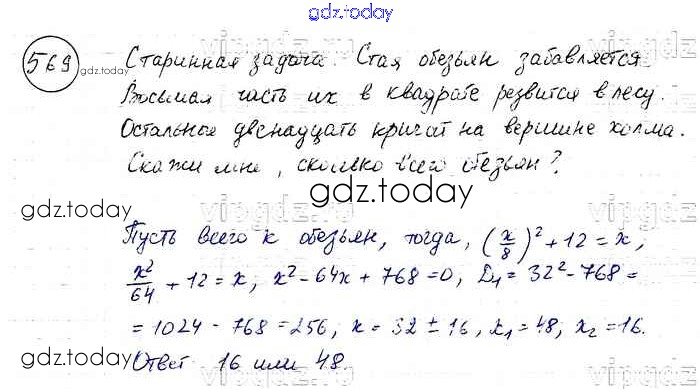 gdz.today
569 Старинная задача. Стая обезьян забавляется.
gdz.today
Восьмая часть их в квадрате резвится в лесу.
Остальные двенадцать кричат на вершине холма.
Скажи мне, сколько всего обезьян?
gdz.today
gdz.today
Пусть всего x обезьян, тогда, (x/8)² + 12 = x,
x²/64 + 12 = x, x² - 64x + 768 = 0, D₁ = 32² - 768 =
= 1024 - 768 = 256, x = 32 ± 16, x₁ = 48; x₂ = 16.
gdz.today
gdz.today
Ответ 16 или 48.